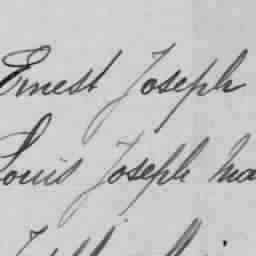 Ernest Joseph
Louis Joseph Ma